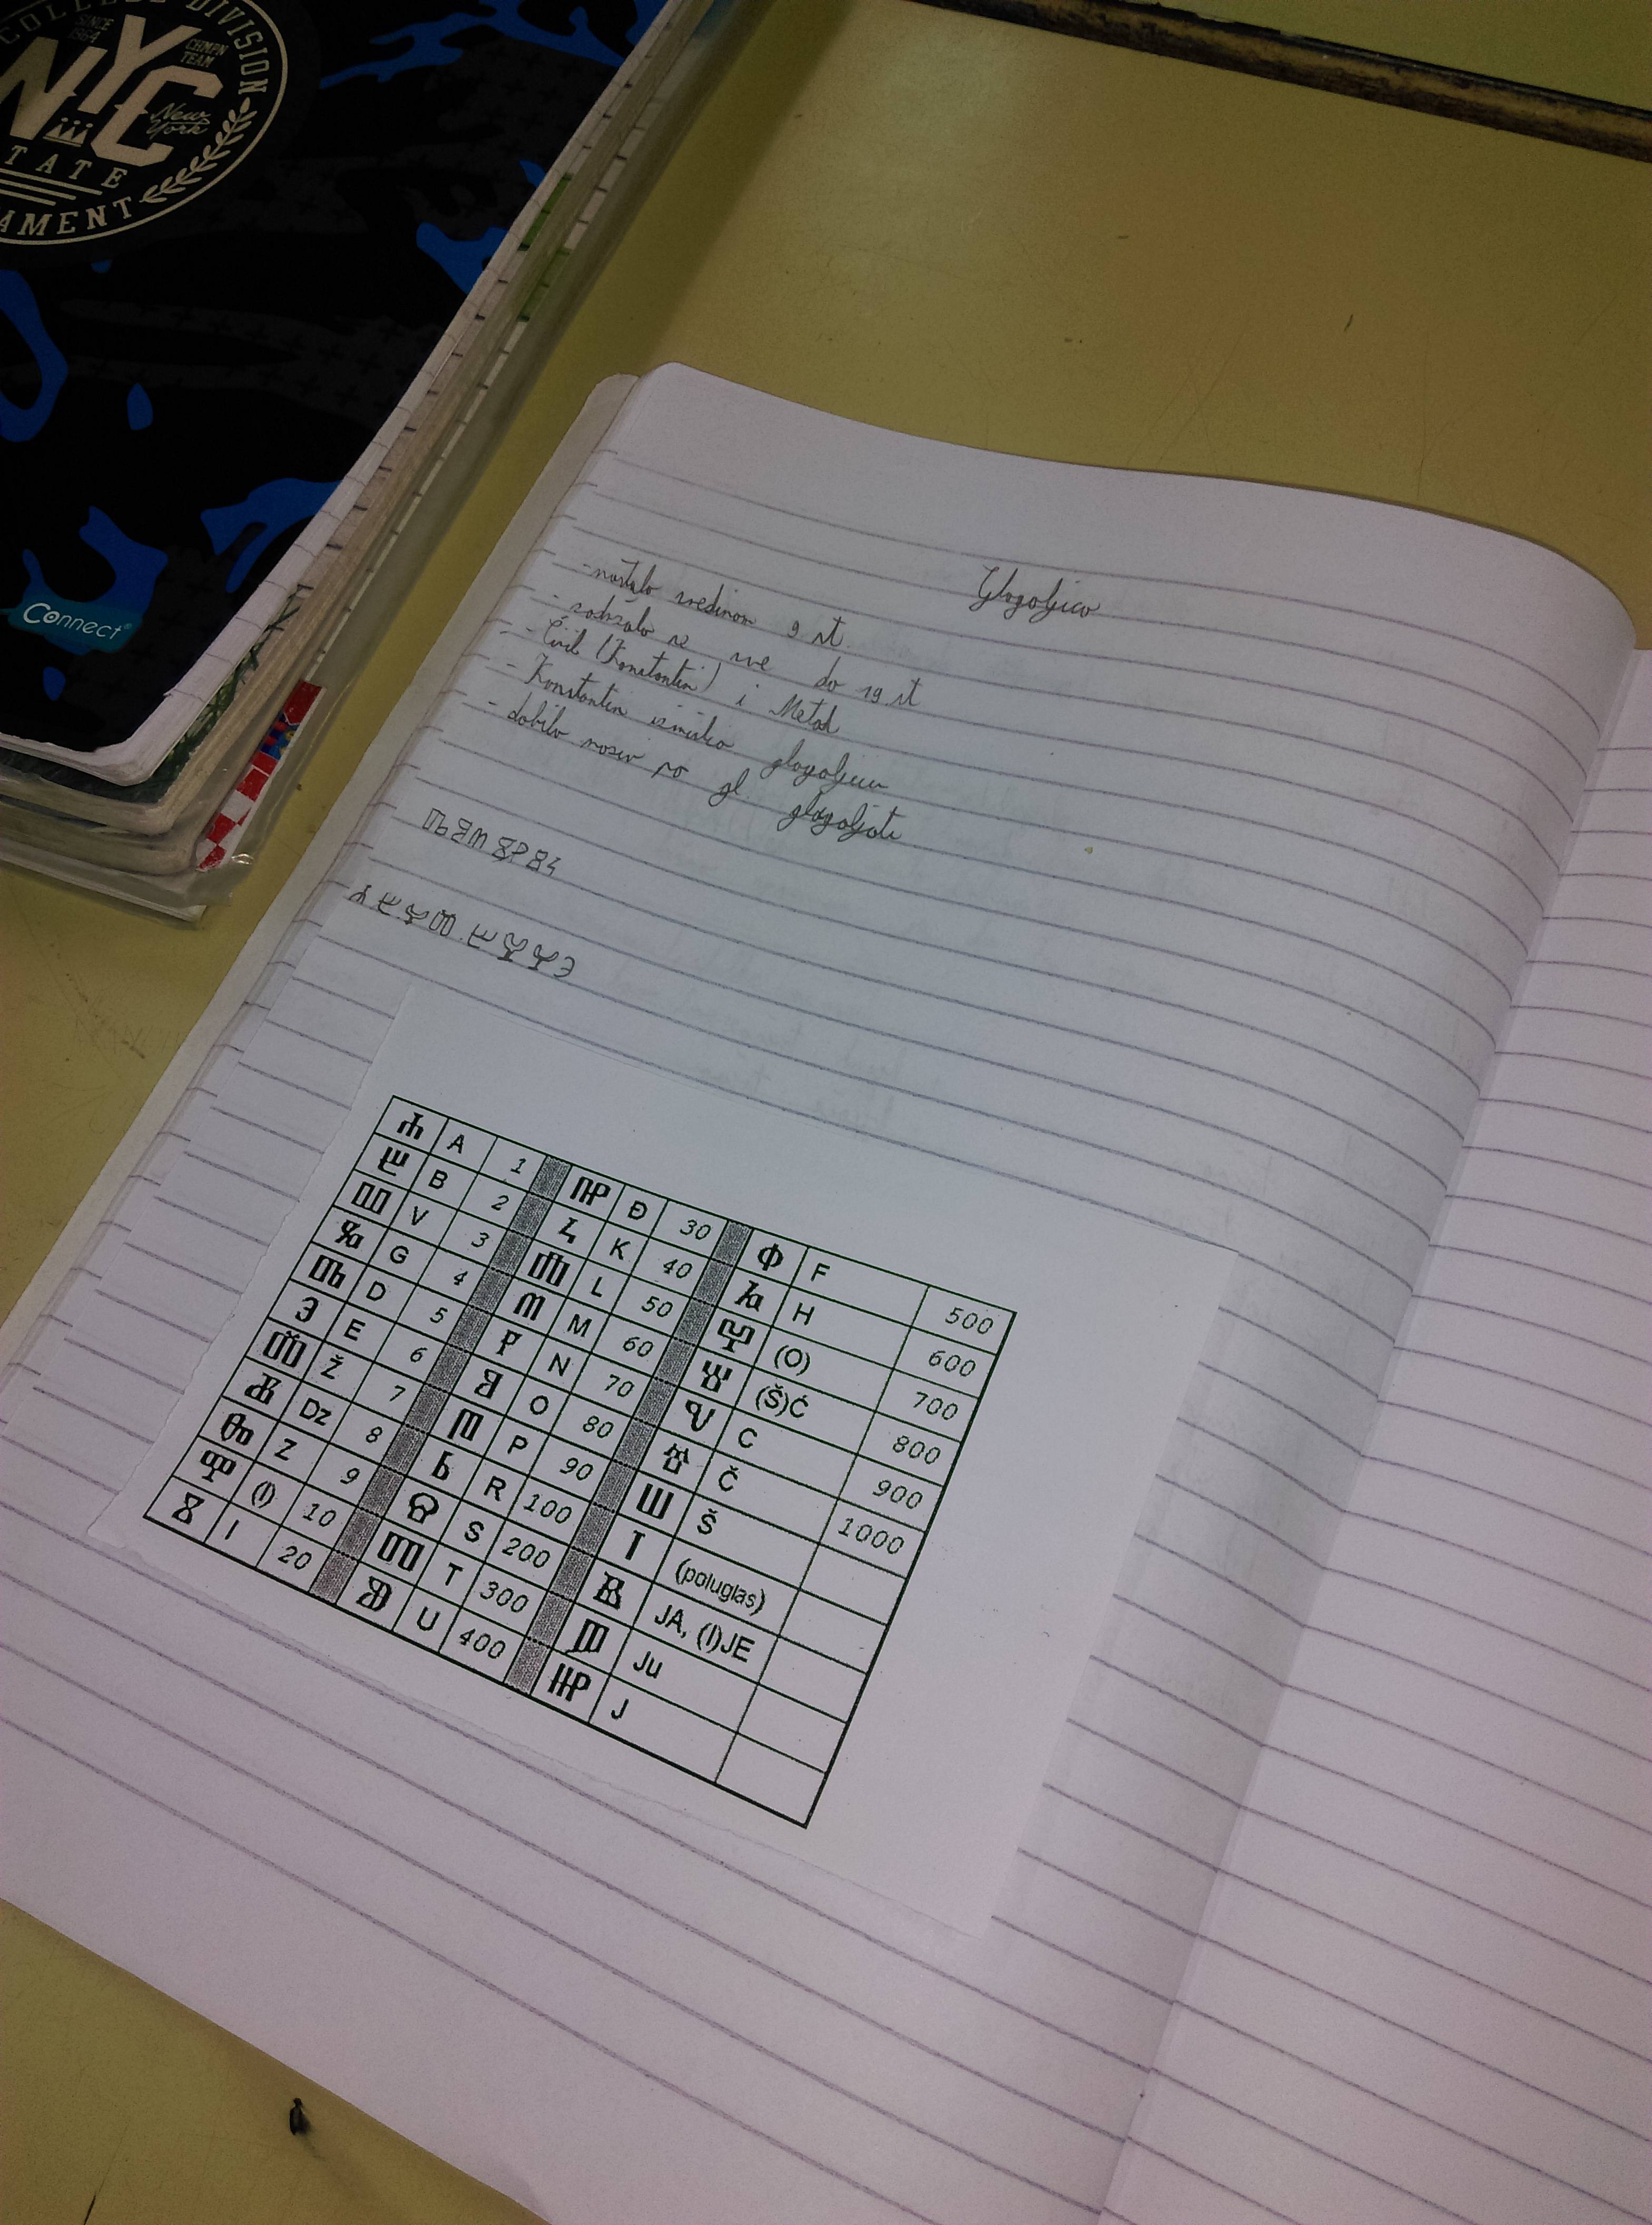 COLLEGE DIVISION
SINCE 1984
NYC
CHMPN TEAM
New York
TATE
AMENT
Connect
Glagoljica
- nastala sredinom 9 st.
- zadržala se sve do 19. st
- Ćiril (Konstantin) i Metod
- Konstantin izmislio glagoljicu
- dobila naziv po gl. glagoljati
Ⰰ A 1 Ⰼ Đ 30 Ⱇ F 500
Ⰱ B 2 Ⰽ K 40 Ⱈ H 600
Ⰲ V 3 Ⰾ L 50 Ⱉ (O) 700
Ⰳ G 4 Ⰿ M 60 Ⱋ (Š)Ć 800
Ⰴ D 5 Ⱀ N 70 Ⱌ C 900
Ⰵ E 6 Ⱁ O 80 Ⱍ Č 1000
Ⰶ Ž 7 Ⱂ P 90 Ⱎ Š
Ⰷ Dz 8 Ⱃ R 100 Ⰺ (poluglas)
Ⰸ Z 9 Ⱄ S 200 Ⱑ JA, (I)JE
Ⰹ (I) 10 Ⱅ T 300 Ⱓ Ju
Ⰻ I 20 Ⱆ U 400 J